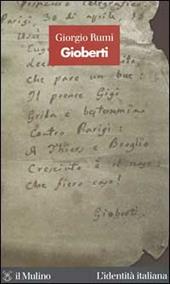 Giorgio Rumi
Gioberti
Parigi, 30 di aprile
che pare un bue:
Il prence Gigi
Grida e bestemmia
Contro Parigi:
A Thiers e Broglio
Cresciuto è il naso:
Che fiero caso!
Gioberti
il Mulino
L'identità italiana